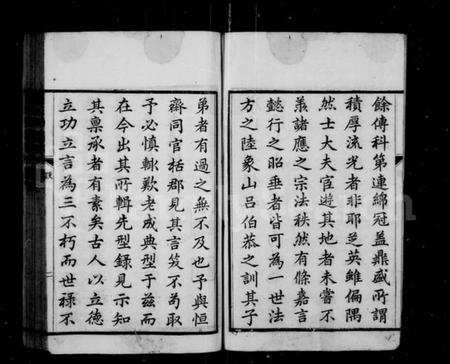 餘傳科第連綿冠蓋鼎盛所謂
積厚流光者非耶芝英雖偏隅
然士大夫宦遊其地者未嘗不
羨諸應之宗法秩然有條嘉言
懿行之昭垂者皆可為一世法
方之陸象山呂伯恭之訓其子
弟者有過之無不及也予與恒
齋同官栝郡見其言笑不茍取
予必慎輒歎老成典型于茲而
在今出其所輯先型錄見示知
其稟承者有素矣古人以立德
立功立言為三不朽而世祿不